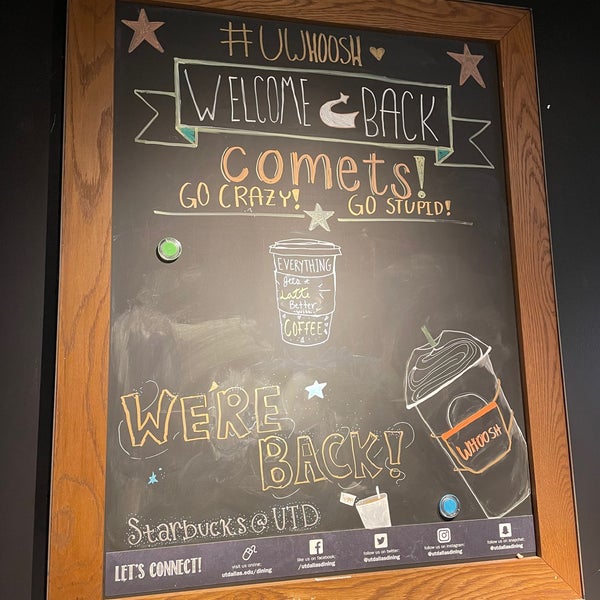 #UWHOOSH
WELCOME BACK
comets!
GO CRAZY! GO STUPID!
EVERYTHING
gets a
Latte
Better
with
COFFEE
WE'RE
BACK!
WHOOSH
Starbucks @ UTD
LET'S CONNECT!
visit us online:
utdallas.edu/dining
like us on facebook:
/utdallasdining
follow us on twitter:
@utdallasdining
follow us on instagram:
@utdallasdining
follow us on snapchat:
@utdallasdining